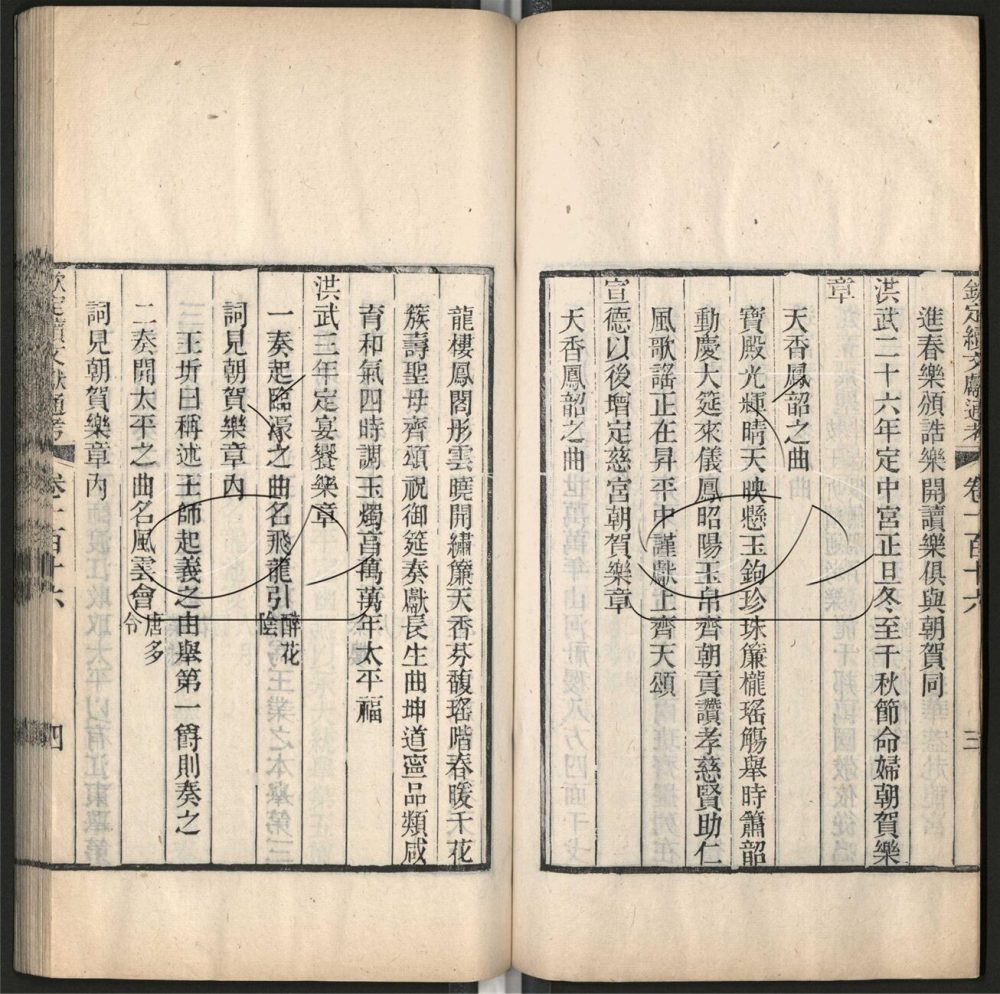 欽定續文獻通考 卷一百十六 三
進春樂頒誥樂開讀樂俱與朝賀同
洪武二十六年定中宮正旦冬至千秋節命婦朝賀樂
章
天香鳳韶之曲
寶殿光輝晴天映懸玉鉤珍珠簾櫳瑤觴舉時簫韶
動慶大筵來儀鳳昭陽玉帛齊朝貢讚孝慈賢助仁
風歌謠正在昇平中謹獻上齊天頌
宣德以後增定慈宮朝賀樂章
天香鳳韶之曲
龍樓鳳閣彤雲曉開繡簾天香芬馥瑤階春暖千花
簇壽聖母齊頌祝御筵奏獻長生曲坤道寧品類咸
育和氣四時調玉燭享萬萬年太平福
洪武三年定宴饗樂章
一奏起臨濠之曲名飛龍引醉花陰
詞見朝賀樂章內
王圻曰稱述王師起義之由舉第一爵則奏之
二奏開太平之曲名風雲會唐多令
詞見朝賀樂章內
欽定續文獻通考 卷一百十六 四